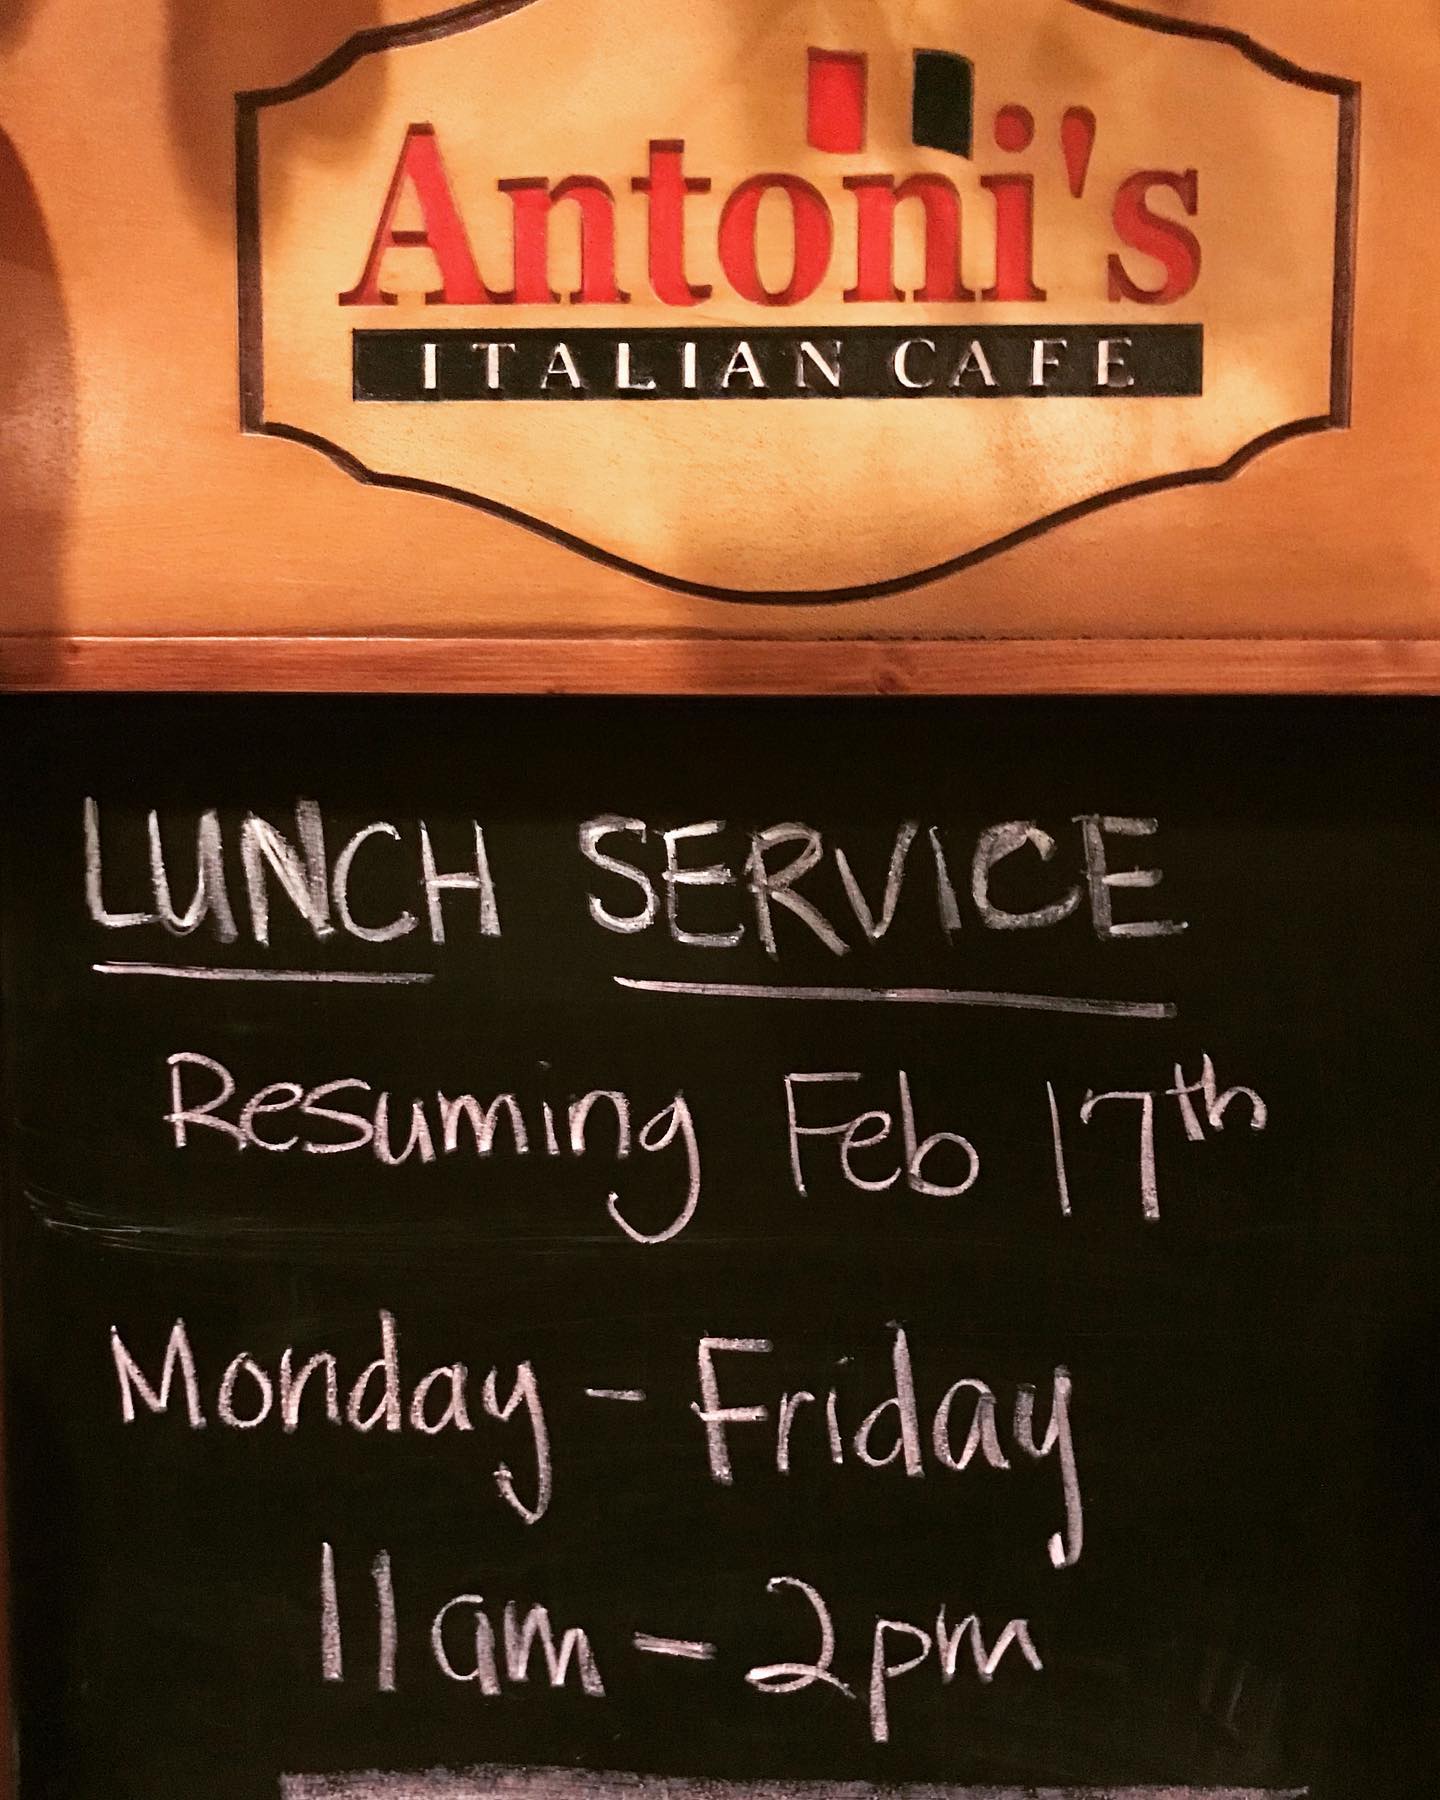 Antoni's
ITALIAN CAFE
LUNCH SERVICE
Resuming Feb 17th
Monday - Friday
11am - 2pm